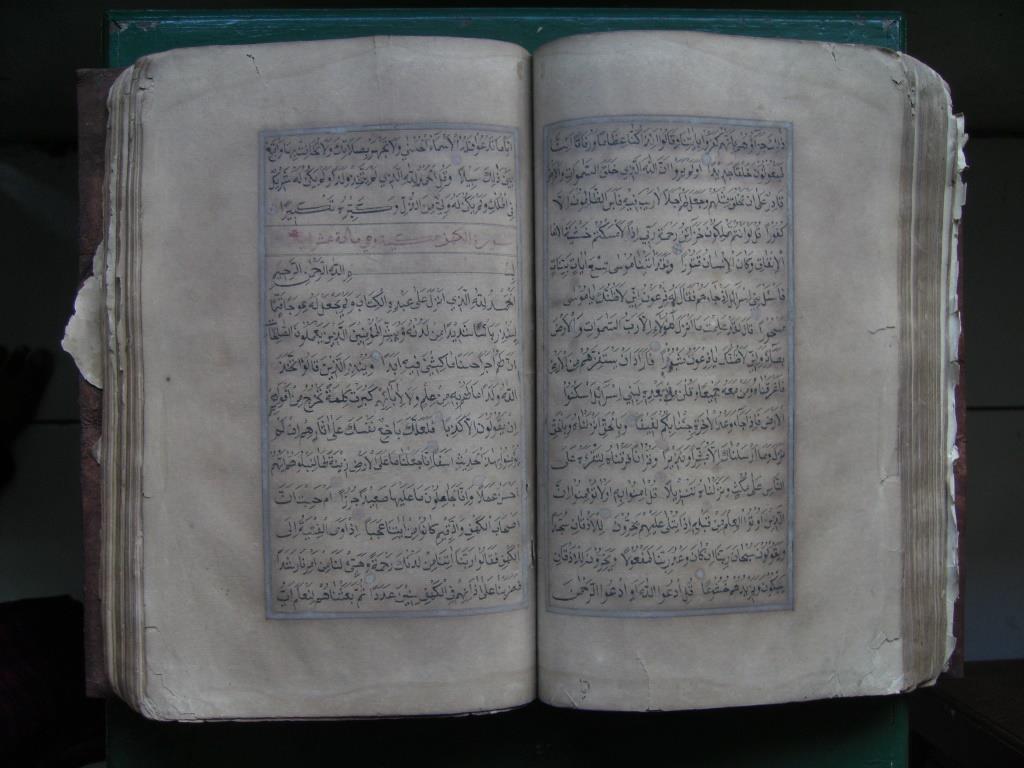 ذلك جزاؤهم بانهم كفروا باياتنا وقالوا ائذا كنا عظاما ورفاتا ائنا
لمبعوثون خلقا جديدا اولم يروا ان الله الذي خلق السموات والارض
قادر على ان يخلق مثلهم وجعل لهم اجلا لا ريب فيه فابى الظالمون الا
كفورا قل لو انتم تملكون خزائن رحمة ربي اذا لامسكتم خشية
الانفاق وكان الانسان قتورا ولقد اتينا موسى تسع ايات بينات
فاسئل بني اسرائيل اذ جاءهم فقال له فرعون اني لاظنك يا موسى
مسحورا قال لقد علمت ما انزل هؤلاء الا رب السموات والارض
بصائر واني لاظنك يا فرعون مثبورا فاراد ان يستفزهم من الارض
فاغرقناه ومن معه جميعا وقلنا من بعده لبني اسرائيل اسكنوا
الارض فاذا جاء وعد الاخرة جئنا بكم لفيفا وبالحق انزلناه وبالحق
نزل وما ارسلناك الا مبشرا ونذيرا وقرانا فرقناه لتقرءه على
الناس على مكث ونزلناه تنزيلا قل امنوا به او لا تؤمنوا ان
الذين اوتوا العلم من قبله اذا يتلى عليهم يخرون للاذقان سجدا
ويقولون سبحان ربنا ان كان وعد ربنا لمفعولا ويخرون للاذقان
يبكون ويزيدهم خشوعا قل ادعوا الله او ادعوا الرحمن
ايا ما تدعوا فله الاسماء الحسنى ولا تجهر بصلاتك ولا تخافت بها وابتغ
بين ذلك سبيلا وقل الحمد لله الذي لم يتخذ ولدا ولم يكن له شريك
في الملك ولم يكن له ولي من الذل وكبره تكبيرا
سورة الكهف
بسم الله الرحمن الرحيم
الحمد لله الذي انزل على عبده الكتاب ولم يجعل له عوجا قيما
لينذر باسا شديدا من لدنه ويبشر المؤمنين الذين يعملون الصالحات
ان لهم اجرا حسنا ماكثين فيه ابدا وينذر الذين قالوا اتخذ
الله ولدا ما لهم به من علم ولا لابائهم كبرت كلمة تخرج من افواههم
ان يقولون الا كذبا فلعلك باخع نفسك على اثارهم ان لم
يؤمنوا بهذا الحديث اسفا انا جعلنا ما على الارض زينة لها لنبلوهم ايهم
احسن عملا وانا لجاعلون ما عليها صعيدا جرزا ام حسبت ان
اصحاب الكهف والرقيم كانوا من اياتنا عجبا اذ اوى الفتية الى
الكهف فقالوا ربنا اتنا من لدنك رحمة وهيئ لنا من امرنا رشدا
فضربنا على اذانهم في الكهف سنين عددا ثم بعثناهم لنعلم اي